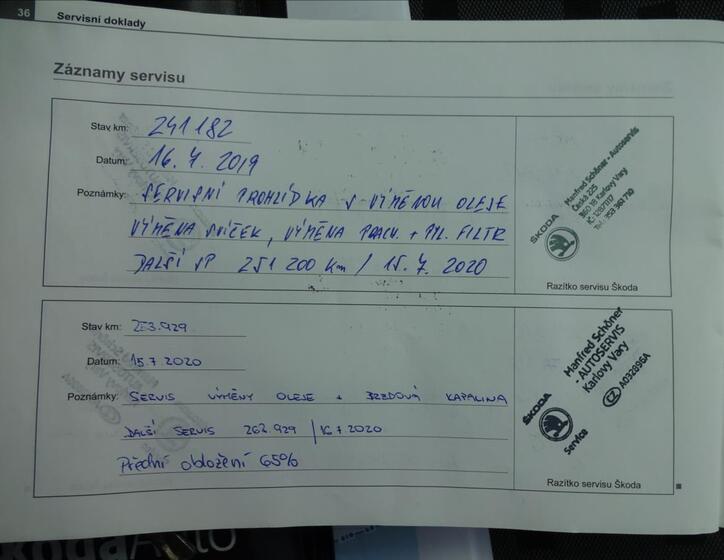 36
Servisní doklady
Záznamy servisu
Stav km: 241 182
Datum: 16. 7. 2019
Poznámky: SERVISNÍ PROHLÍDKA S VÝMĚNOU OLEJE
VÝMĚNA SVÍČEK, VÝMĚNA PRACH. + PYL. FILTR
DALŠÍ SP 251 200 Km / 15. 7. 2020
Manfred Schöner - Autoservis
Česká 225
360 18 Karlovy Vary
ŠKODA
Razítko servisu Škoda
Stav km: 253.929
Datum: 15.7 2020
Poznámky: SERVIS VÝMĚNY OLEJE + BRZDOVÁ KAPALINA
DALŠÍ SERVIS 262 929 / 16 7 2020
Přední obložení 65%
Manfred Schöner
- AUTOSERVIS
Karlovy Vary
CZ A032896A
ŠKODA
Service
Razítko servisu Škoda